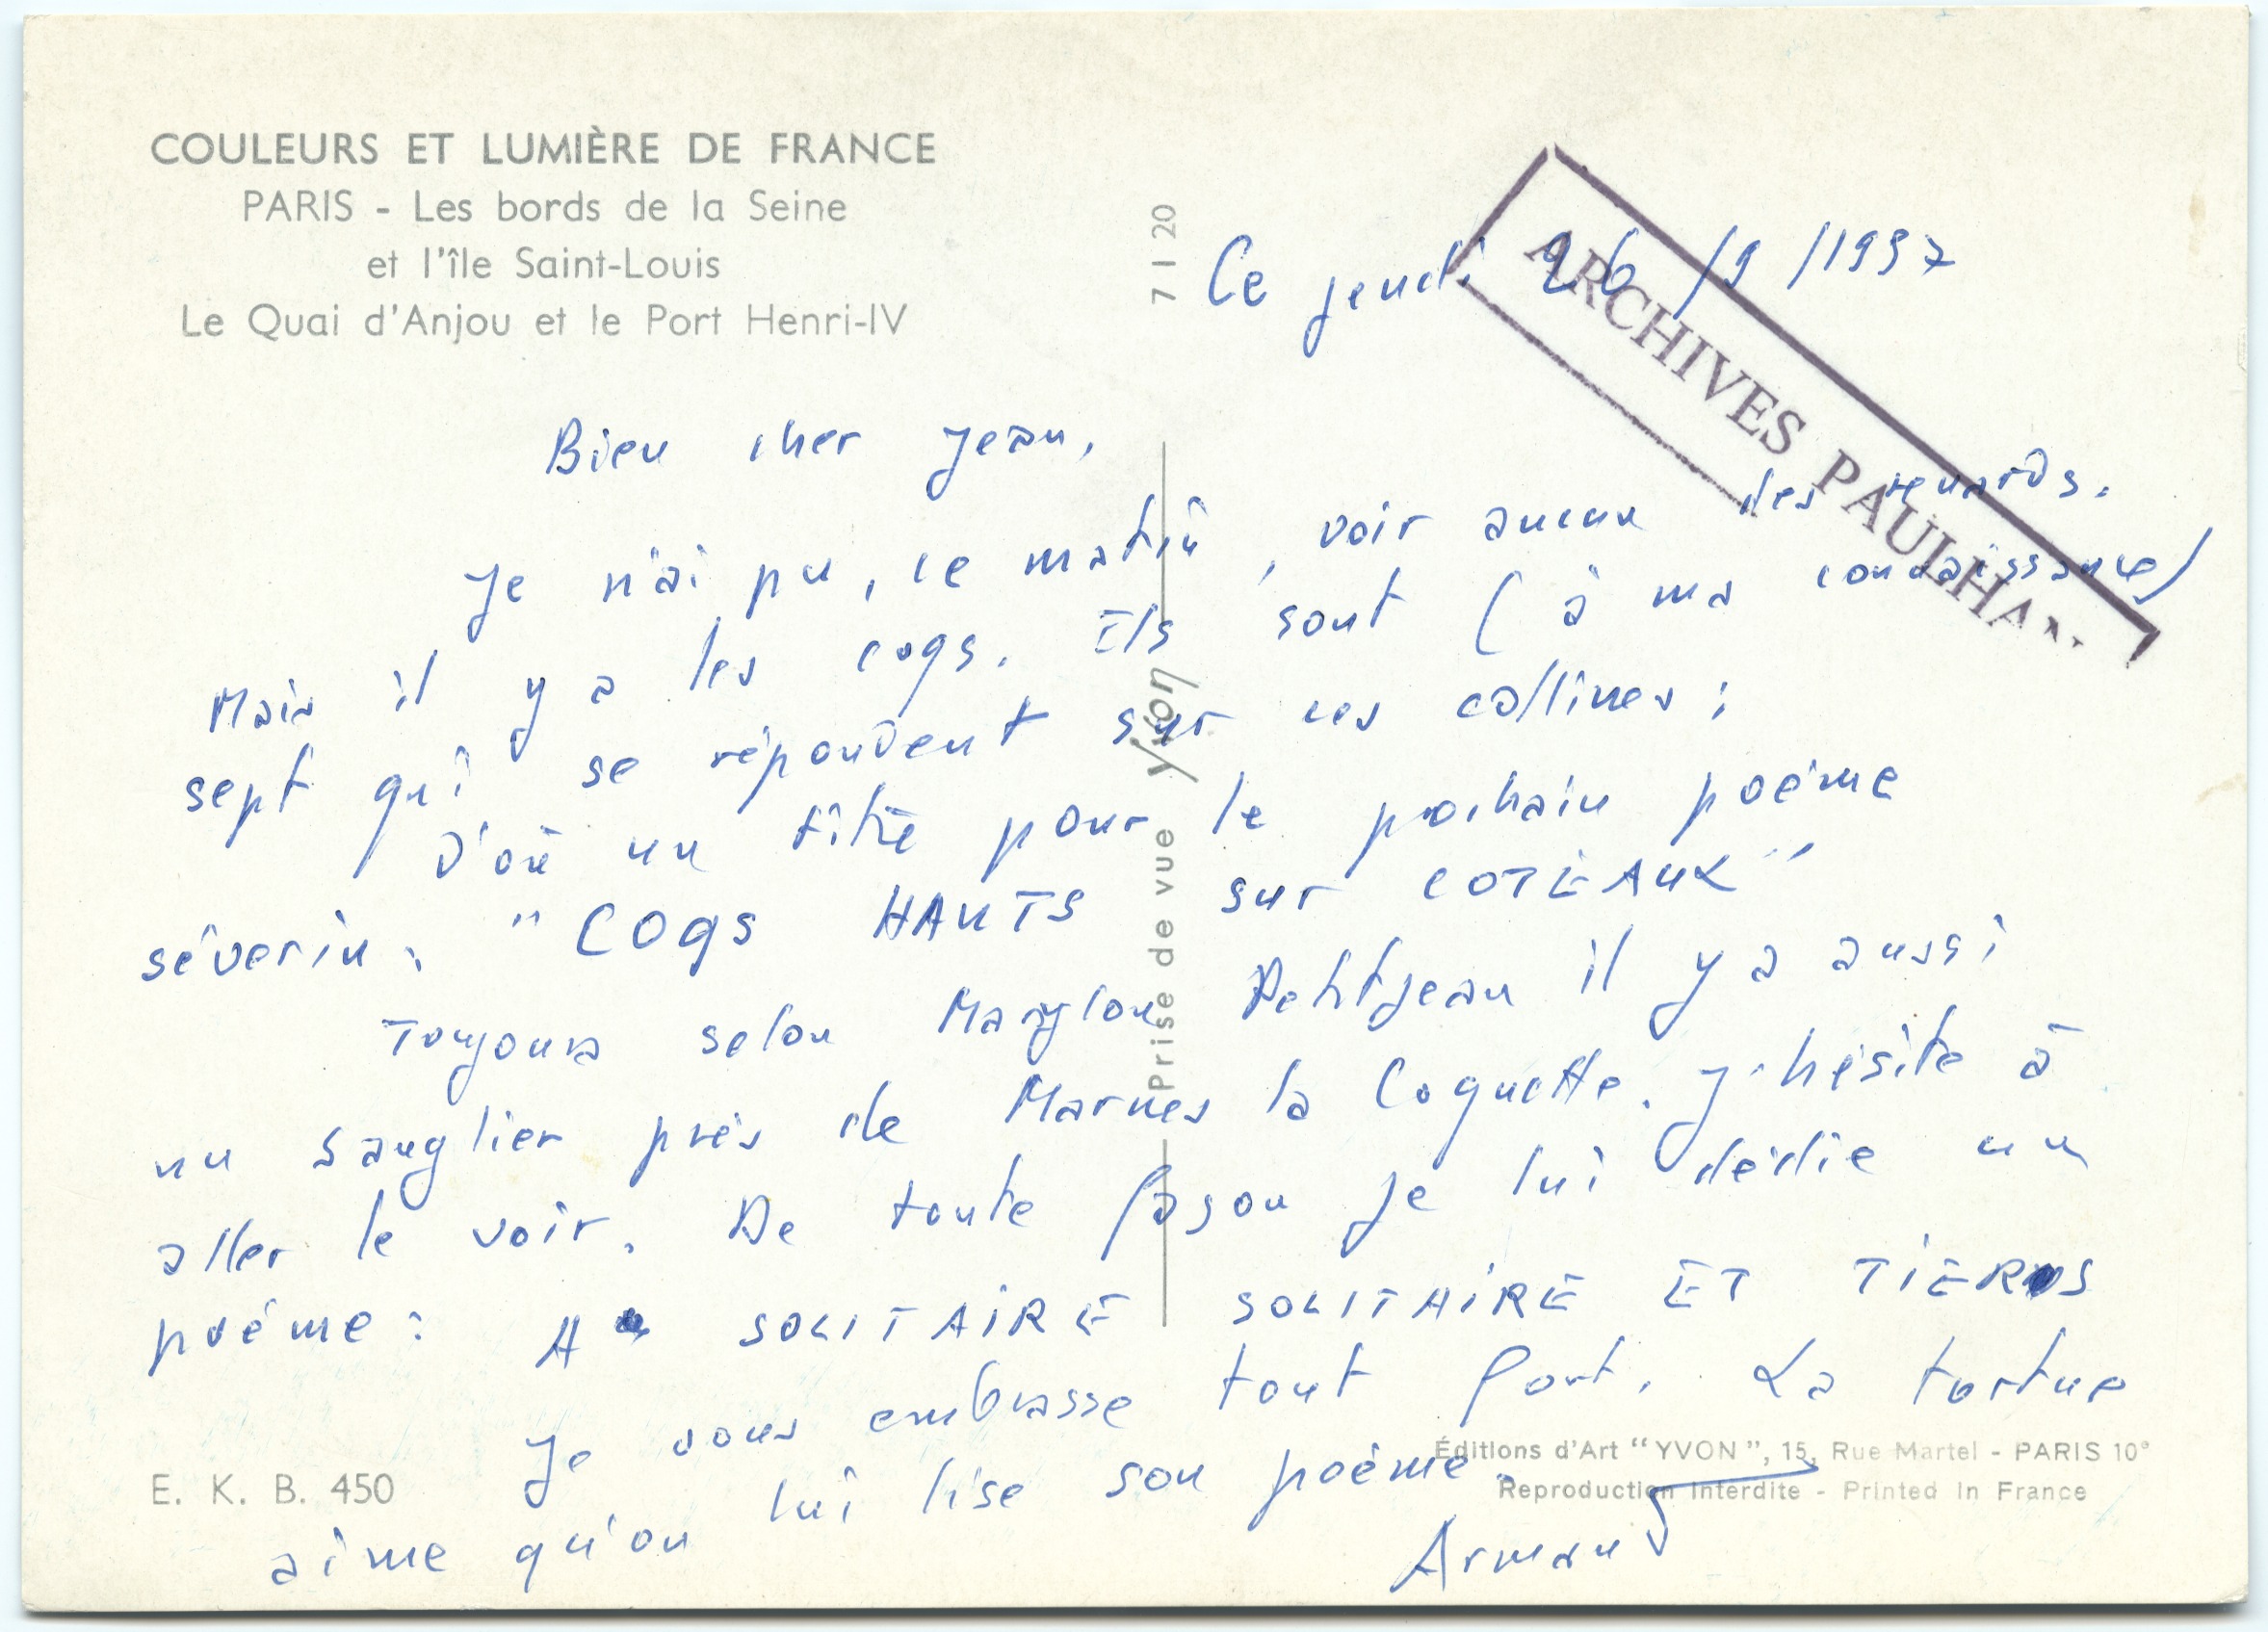 COULEURS ET LUMIÈRE DE FRANCE
PARIS - Les bords de la Seine
et l'île Saint-Louis
Le Quai d'Anjou et le Port Henri-IV
7 I 20
Ce jeudi 26/9/1957
ARCHIVES PAULHAN
Bien cher Jean,
Je n'ai pu, ce matin, voir aucun des renards.
Mais il y a les coqs. Ils sont (à ma connaissance)
sept qui se répondent sur ces collines ;
D'où un titre pour le prochain poème
séverin : "COQS HAUTS sur COTEAUX"
Toujours selon Marylou Petitjean il y a aussi
un sanglier près de Marnes la Coquette. J'hésite à
aller le voir. De toute façon je lui dédie un
poème : A SOLITAIRE SOLITAIRE ET TIERS
Je vous embrasse tout fort. La tortue
aime qu'on lui lise son poème.
Armand
Prise de vue Yvon
E. K. B. 450
Éditions d'Art "YVON", 15, Rue Martel - PARIS 10e
Reproduction Interdite - Printed in France